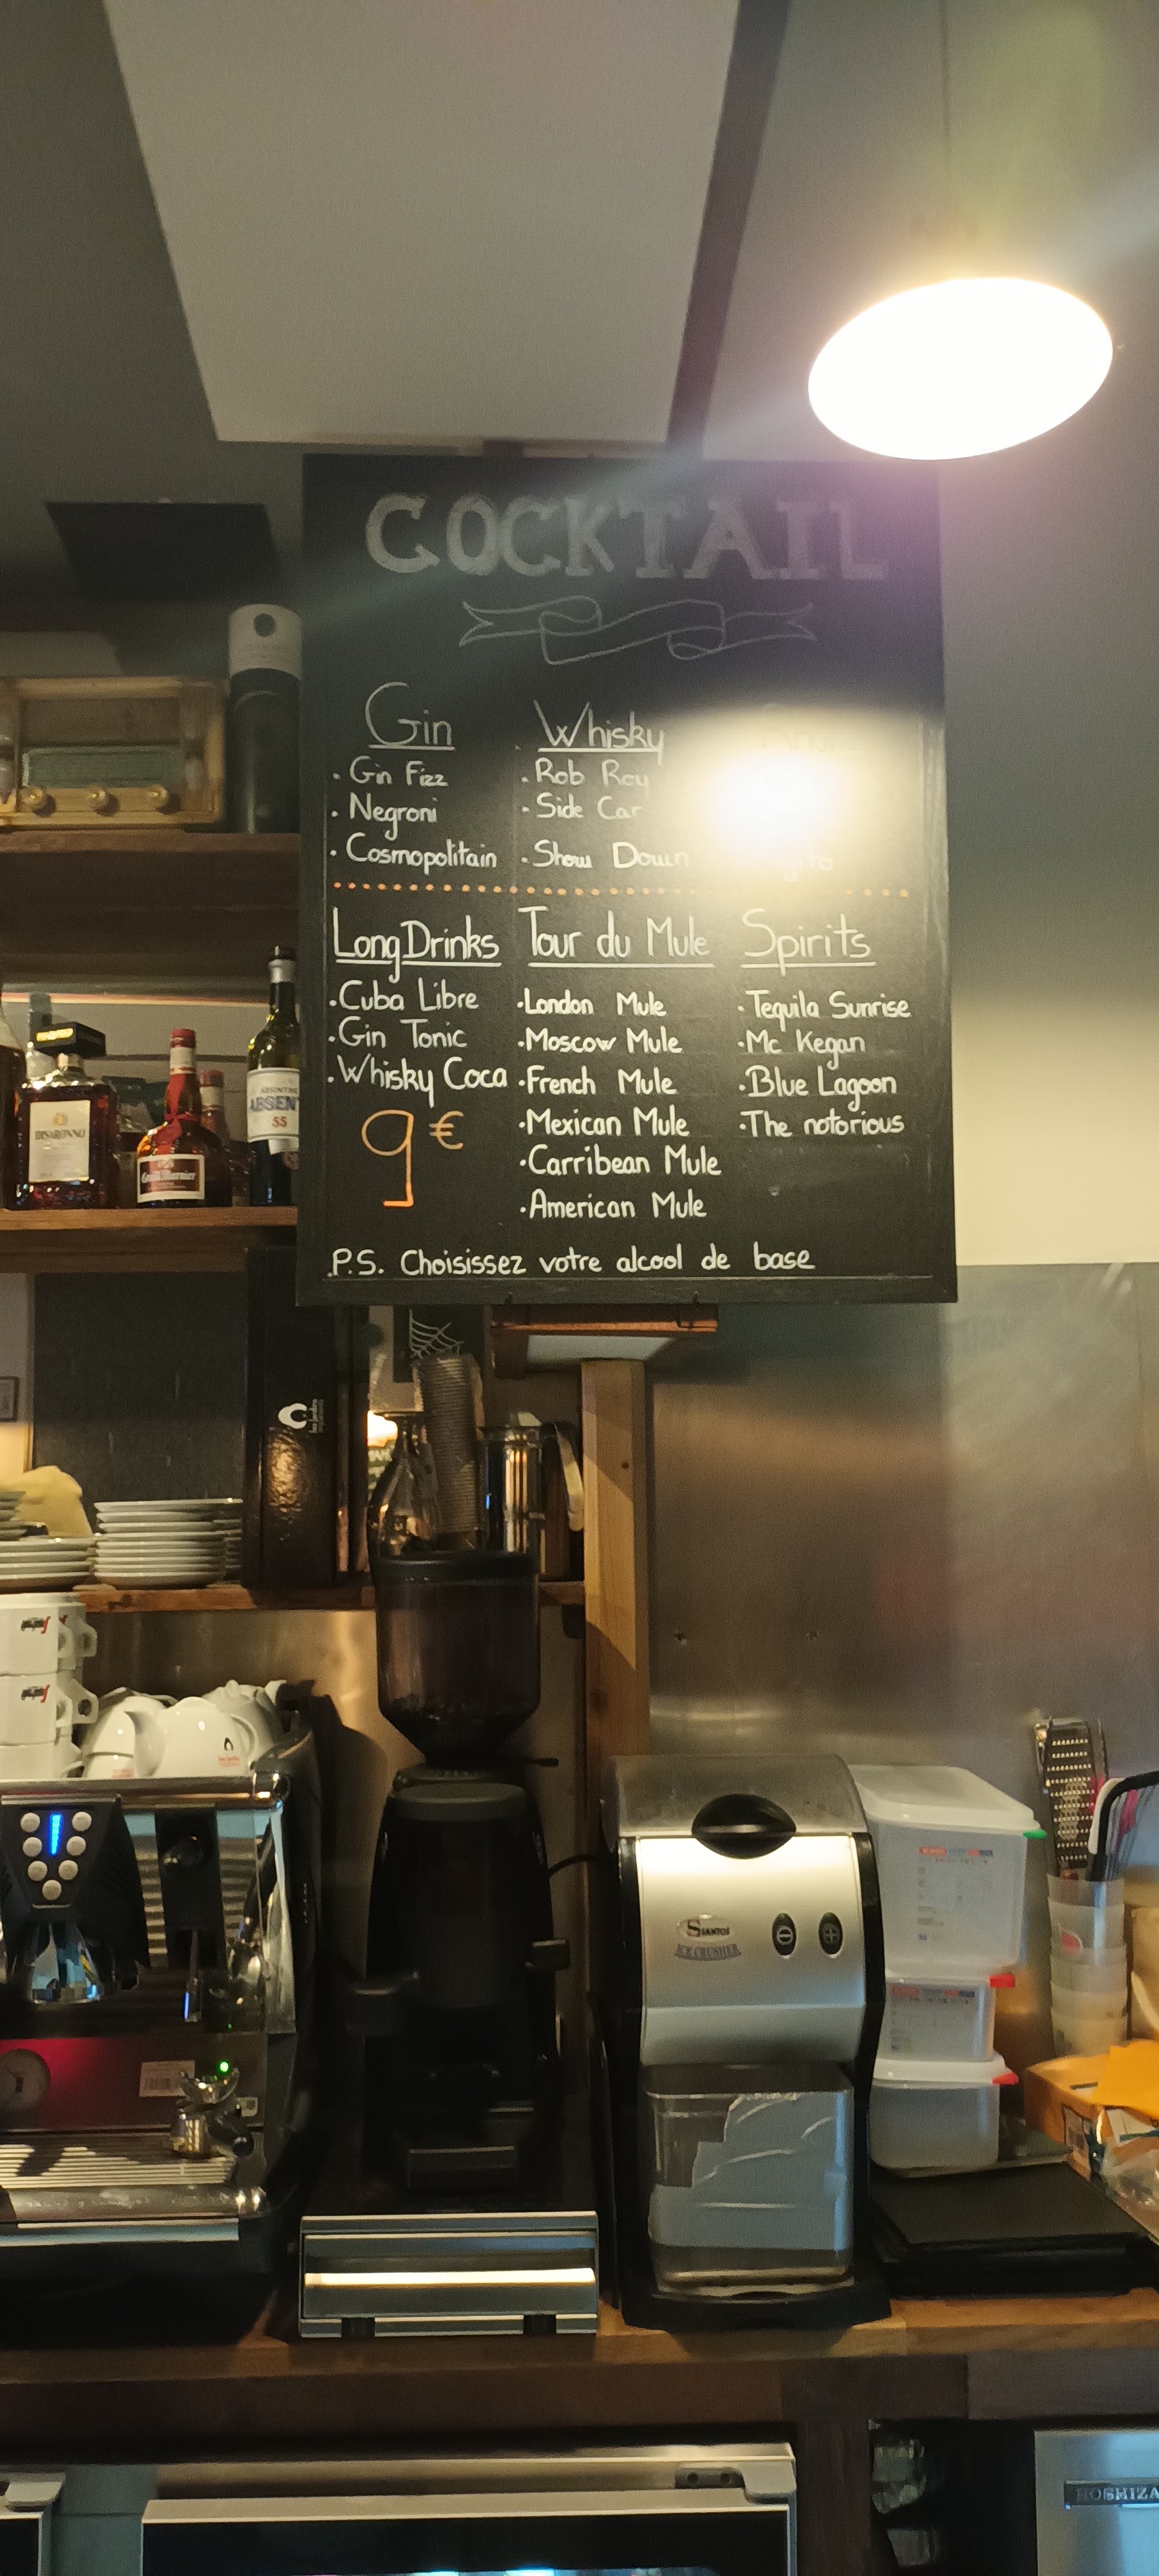 COCKTAIL
Gin
· Gin Fizz
· Negroni
· Cosmopolitain
Whisky
· Rob Roy
· Side Car
· Show Down
Long Drinks
· Cuba Libre
· Gin Tonic
· Whisky Coca
9 €
Tour du Mule
· London Mule
· Moscow Mule
· French Mule
· Mexican Mule
· Carribean Mule
· American Mule
Spirits
· Tequila Sunrise
· Mc Kegan
· Blue Lagoon
· The notorious
P.S. Choisissez votre alcool de base
DISARONNO
Grand Marnier
ABSINTHE
ABSEN
55
SANTOS
ICE CRUSHER
HOSHIZA